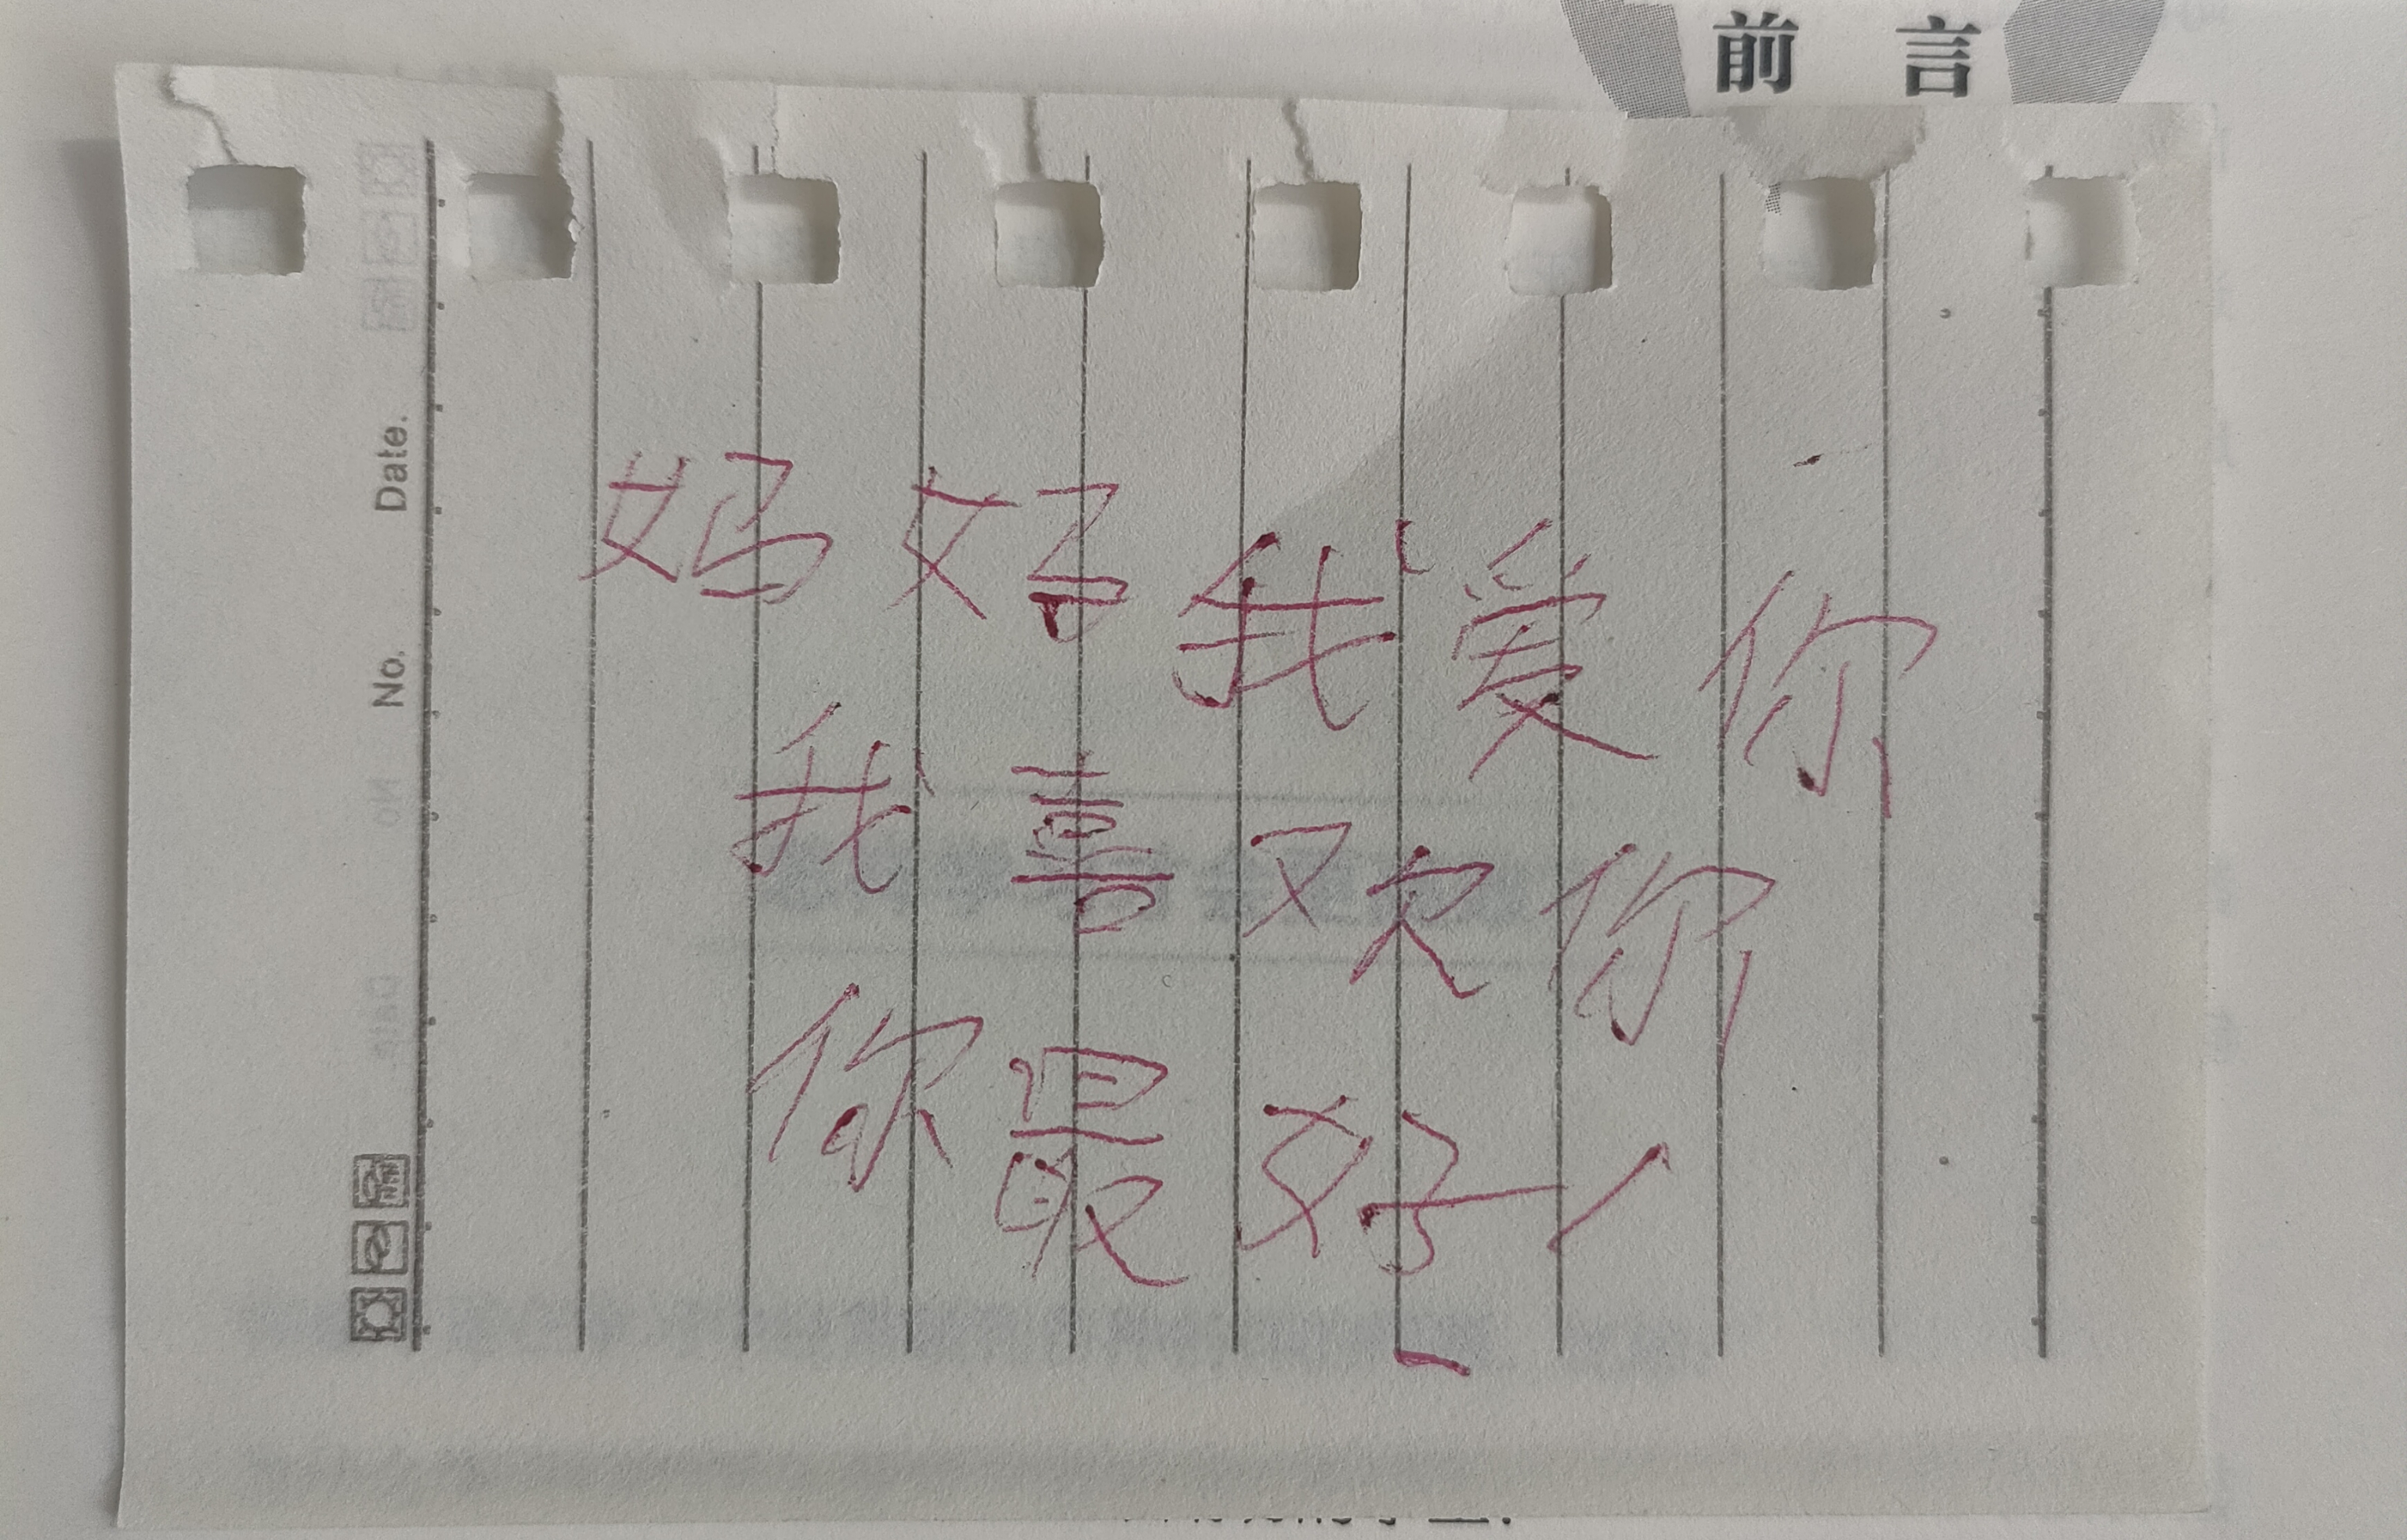 前 言
妈妈我爱你
我喜欢你
你最好!
No.
Date.